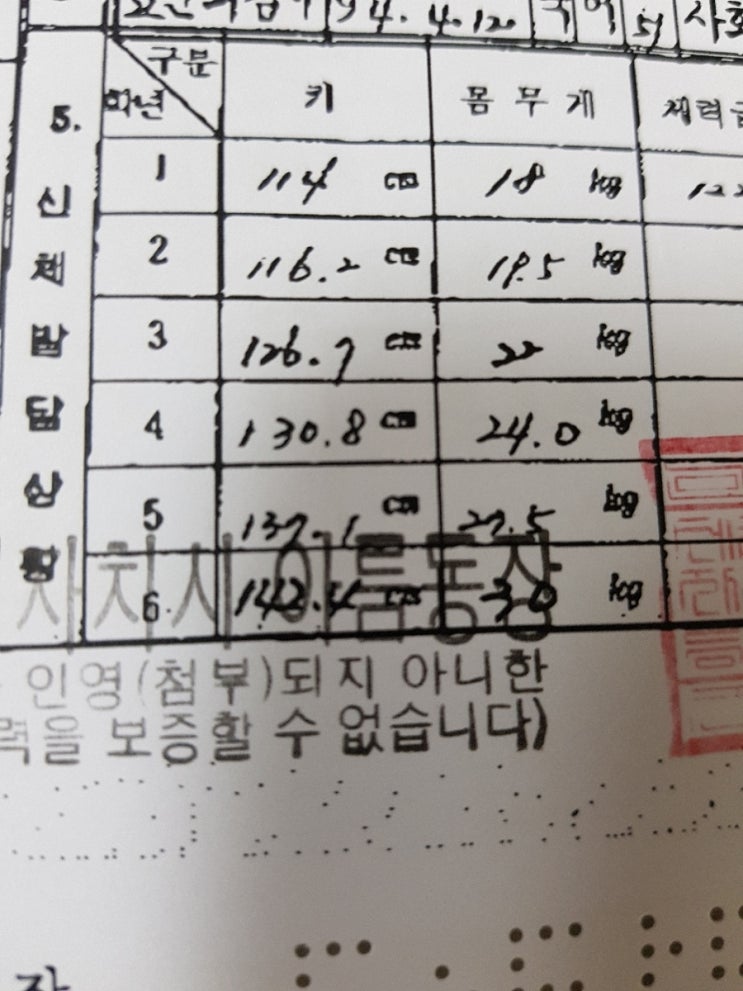 94. 4. 120 국어
구분 학년 키 몸무게 체력
5. 신체발달상황
1 114 cm 18 kg
2 116.2 cm 19.5 kg
3 126.7 cm 22 kg
4 130.8 cm 24.0 kg
5 137.1 cm 27.5 kg
6 142.4 cm 30 kg
자치시 아름동장
인영(첨부)되지 아니한
력을 보증할 수 없습니다)